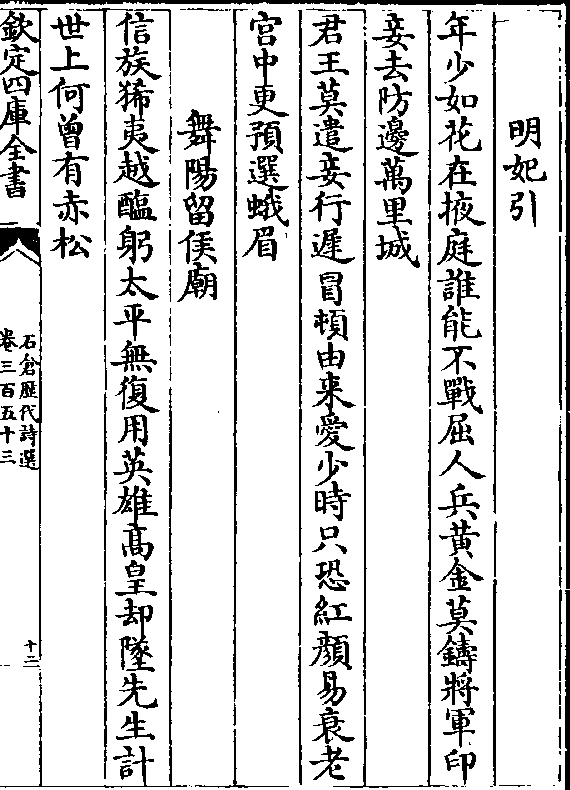 明妃引
年少如花在掖庭誰能不戰屈人兵黄金莫鑄將軍印
妾去防邊萬里城
君王莫遣妾行遲冒頓由来愛少時只恐紅顔易衰老
宫中更預選蛾眉
舞陽留侯廟
信族豨夷越醢躬太平無復用英雄髙皇却墜先生計
世上何曾有赤松
欽定四庫全書
石倉歴代詩選
卷三百五十三
十二